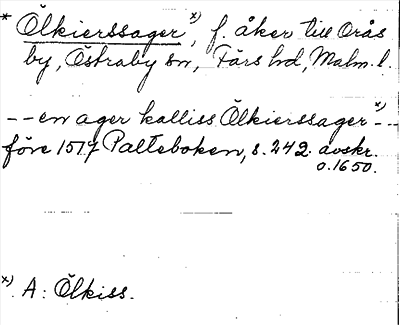 * Ölkierssager x), f. åker till Orås
by, Östraby sn, Färs hd, Malm. l.
-- en ager kalliss Ölkierssager x) --
före 1517 Palteboken, s. 242. avskr.
o. 1650.
x) A: Ölkiss.